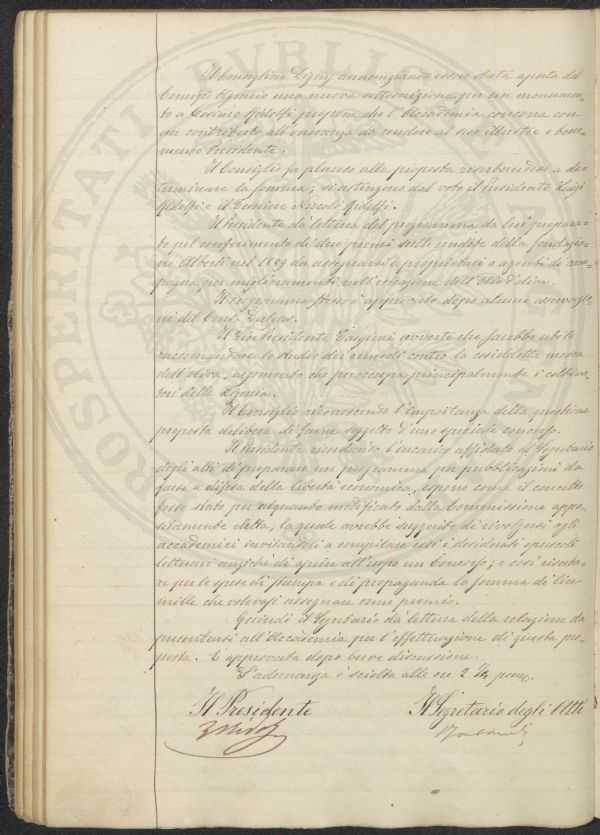 PROSPERITATI PUBLICAE AUGENDAE
Il Consigliere Digny annunziando essere stata aperta dal
Comizio Agrario una nuova sottoscrizione per un monumen-
to a Cosimo Ridolfi propone che l'Accademia concorra con
un contributo all'onoranza da rendere al suo illustre e bene-
merito Presidente.
Il Consiglio fa plauso alla proposta riserbandosi a de-
terminare la somma; si astengono dal voto il Presidente Luigi
Ridolfi e il Niccolò Ridolfi.
Il Presidente dà lettura del programma da lui prepara-
to pel conferimento di due premi sulle rendite della fondazio-
ne Alberti nel 1889 da assegnarsi a proprietari o agenti di cam-
pagna per miglioramenti nell'estrazione dell'Olio d'oliva.
Il programma stesso è approvato dopo alcune osservazio-
ni del Cons.
Il Vice Presidente Targioni avverte che sarebbe utile
raccomandare lo studio dei rimedi contro la cosiddetta mosca
dell'oliva, argomento che preoccupa principalmente i coltiva-
tori della
Il Consiglio riconoscendo l'importanza della questione
proposta delibera di farne soggetto d'uno speciale concorso.
Il Presidente rendendo l'incarico affidato al Segretario
degli atti di preparare un programma per pubblicazioni da
farsi a difesa della libertà economica, espone come il concetto
fosse stato per alquanto modificato dalla Commissione appo-
sitamente eletta; la quale avrebbe suggerito di rivolgersi agli
accademici invitandoli a compilare essi i desiderati opuscoli
letterari anziché di aprire all'uopo un Concorso; e così rispar-
miare per le spese di stampa e di propaganda la somma di lire
mille che volevasi assegnare come premio.
Quindi il Segretario dà lettura della relazione da
presentarsi all'Accademia per l'effettuazione di questa pro-
posta. È approvata dopo breve discussione.
L'adunanza è sciolta alle ore 2 1/4 pom.
Il Presidente Il Segretario degli Atti